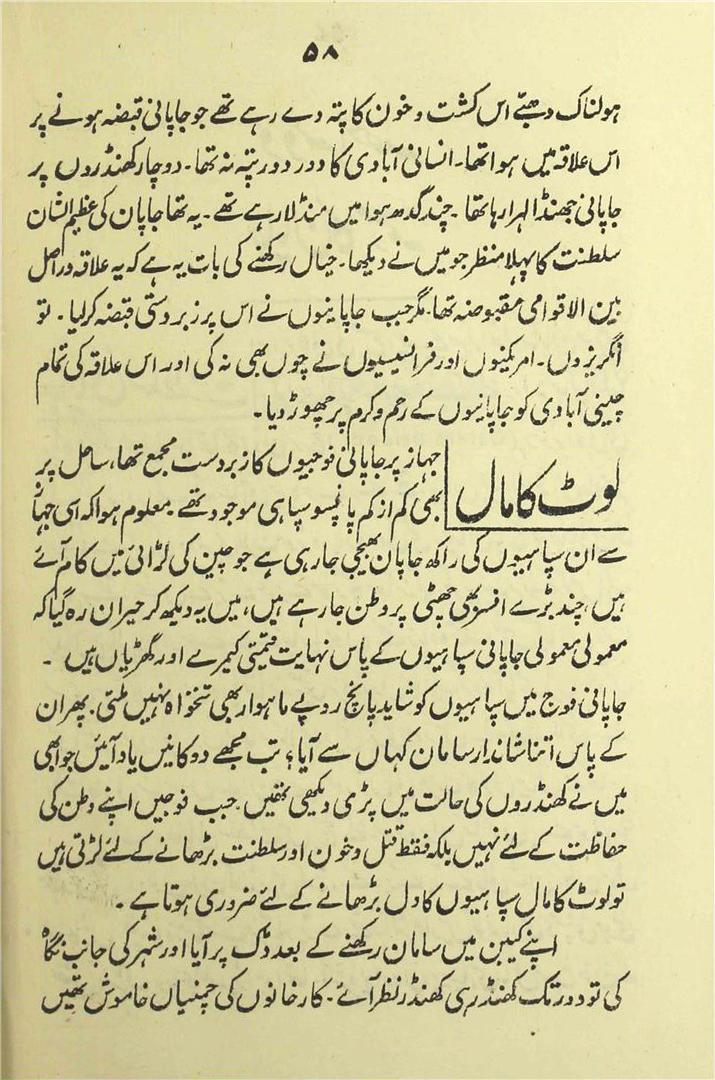 ۵۸
ہولناک دھبّے اس کشت و خون کا پتہ دے رہے تھے جو جاپانی قبضہ ہونے پر
اس علاقہ میں ہوا تھا۔ انسانی آبادی کا دور دور پتہ نہ تھا۔ دو چار کھنڈروں پر
جاپانی جھنڈا لہرا رہا تھا۔ چند گدھ ہوا میں منڈلا رہے تھے۔ یہ تھا جاپان کی عظیم الشان
سلطنت کا پہلا منظر جو میں نے دیکھا۔ خیال رکھنے کی بات یہ ہے کہ یہ علاقہ دراصل
بین الاقوامی مقبوضہ تھا۔ مگر جب جاپانیوں نے اس پر زبردستی قبضہ کر لیا۔ تو
انگریزوں۔ امریکنوں اور فرانسیسیوں نے چوں بھی نہ کی اور اس علاقہ کی تمام
چینی آبادی کو جاپانیوں کے رحم و کرم پر چھوڑ دیا۔
لوٹ کا مال
جہاز پر جاپانی فوجیوں کا زبردست مجمع تھا، ساحل پر
بھی کم از کم پانسو سپاہی موجود تھے۔ معلوم ہوا کہ اسی جہاز
سے ان سپاہیوں کی راکھ جاپان بھیجی جا رہی ہے جو چین کی لڑائی میں کام آئے
ہیں، چند بڑے افسر بھی چھٹی پر وطن جا رہے ہیں، میں یہ دیکھ کر حیران رہ گیا کہ
معمولی معمولی جاپانی سپاہیوں کے پاس نہایت قیمتی کیمرے اور گھڑیاں ہیں۔
جاپانی فوج میں سپاہیوں کو شاید پانچ روپے ماہوار بھی تنخواہ نہیں ملتی۔ پھر ان
کے پاس اتنا شاندار سامان کہاں سے آیا؟ تب مجھے دوکانیں یاد آئیں جو ابھی
میں نے کھنڈروں کی حالت میں پڑی دیکھی تھیں۔ جب فوجیں اپنے وطن کی
حفاظت کے لئے نہیں بلکہ فقط قتل و خون اور سلطنت بڑھانے کے لئے لڑتی ہیں
تو لوٹ کا مال سپاہیوں کا دل بڑھانے کے لئے ضروری ہوتا ہے۔
اپنے کیبن میں سامان رکھنے کے بعد ڈک پر آیا اور شہر کی جانب نگاہ
کی تو دور تک کھنڈر ہی کھنڈر نظر آئے۔ کارخانوں کی چمنیاں خاموش تھیں